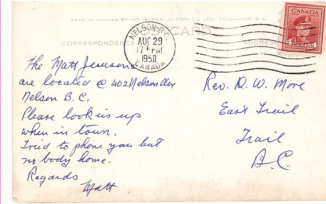 CARD
CORRESPONDENCE
NELSON
AUG 29
1950
CANADA
CANADA
The Matt
are located @ 402 Nelson Ave
Nelson B.C.
Please look us up
when in town.
Tried to phone you but
no body home.
Regards
Matt
Rev. D. W. More
East Trail
Trail
B.C.